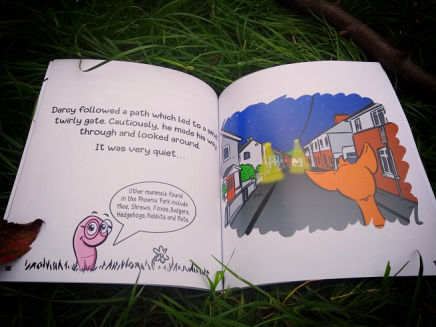 Darcy followed a path which led to a small
twirly gate. Cautiously, he made his way
through and looked around.
It was very quiet...
Other mammals found
in the Phoenix Park include
Mice, Shrews, Foxes, Badgers,
Hedgehogs, Rabbits and Rats.